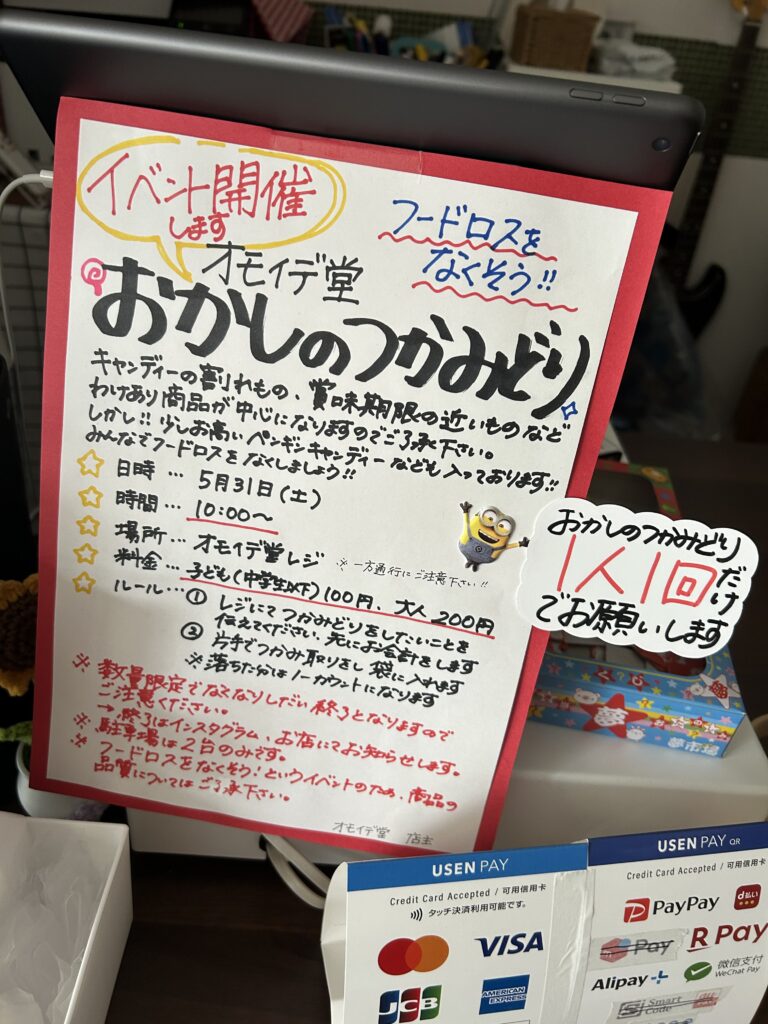 イベント開催
します
フードロスを
なくそう!!
オモイデ堂
おかしのつかみどり
キャンディーの割れもの、賞味期限の近いものなど
わけあり商品が中心になりますのでご了承下さい。
しかし!!少しお高いペンギンキャンディーなども入っております!!
みんなでフードロスをなくしましょう!!
日時…5月31日(土)
時間…10:00〜
場所…オモイデ堂レジ ※一方通行にご注意下さい!!
料金…子ども(中学生以下)100円、大人200円
ルール…① レジにてつかみどりをしたいことを
伝えてください、先にお会計をします
② 片手でつかみ取りをし袋に入れます
※落ちた分はノーカウントになります
※数量限定でなくなりしだい終了となりますので
ご注意ください。
→終了はインスタグラム、お店にてお知らせします。
※駐車場は2台のみです。
※フードロスをなくそう!というイベントのため、商品の
品質についてはご了承下さい。
オモイデ堂 店主
おかしのつかみどり
1人1回だけ
でお願いします
夢市場
USEN PAY
Credit Card Accepted / 可用信用卡
タッチ決済利用可能です。
VISA
JCB
AMERICAN EXPRESS
USEN PAY QR
Credit Card Accepted / 可用信用卡
PayPay
d払い
Pay
R Pay
Alipay+
微信支付
WeChat Pay
Smart Code